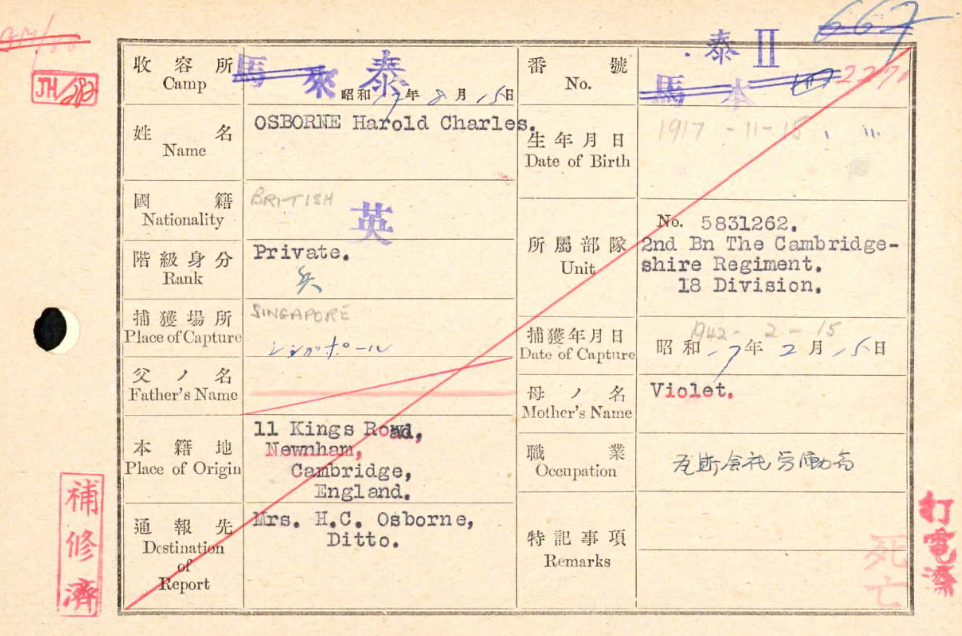 667
泰 II
JH
收容所
Camp
馬來 泰
昭和 17 年 8 月 15 日
番號
No.
馬 本 2270
姓名
Name
OSBORNE Harold Charles.
生年月日
Date of Birth
1917 - 11 - 15
國籍
Nationality
BRITISH
英
階級身分
Rank
Private.
兵
所屬部隊
Unit
No. 5831262.
2nd Bn The Cambridge-
shire Regiment.
18 Division.
捕獲場所
Place of Capture
SINGAPORE
シンガポール
捕獲年月日
Date of Capture
1942 - 2 - 15
昭和 17 年 2 月 15 日
父ノ名
Father's Name
母ノ名
Mother's Name
Violet.
本籍地
Place of Origin
11 Kings Road,
Newnham,
Cambridge,
England.
職業
Occupation
瓦斯会社労働者
通報先
Destination
of
Report
Mrs. H.C. Osborne,
Ditto.
特記事項
Remarks
死亡
補修濟
打電濟